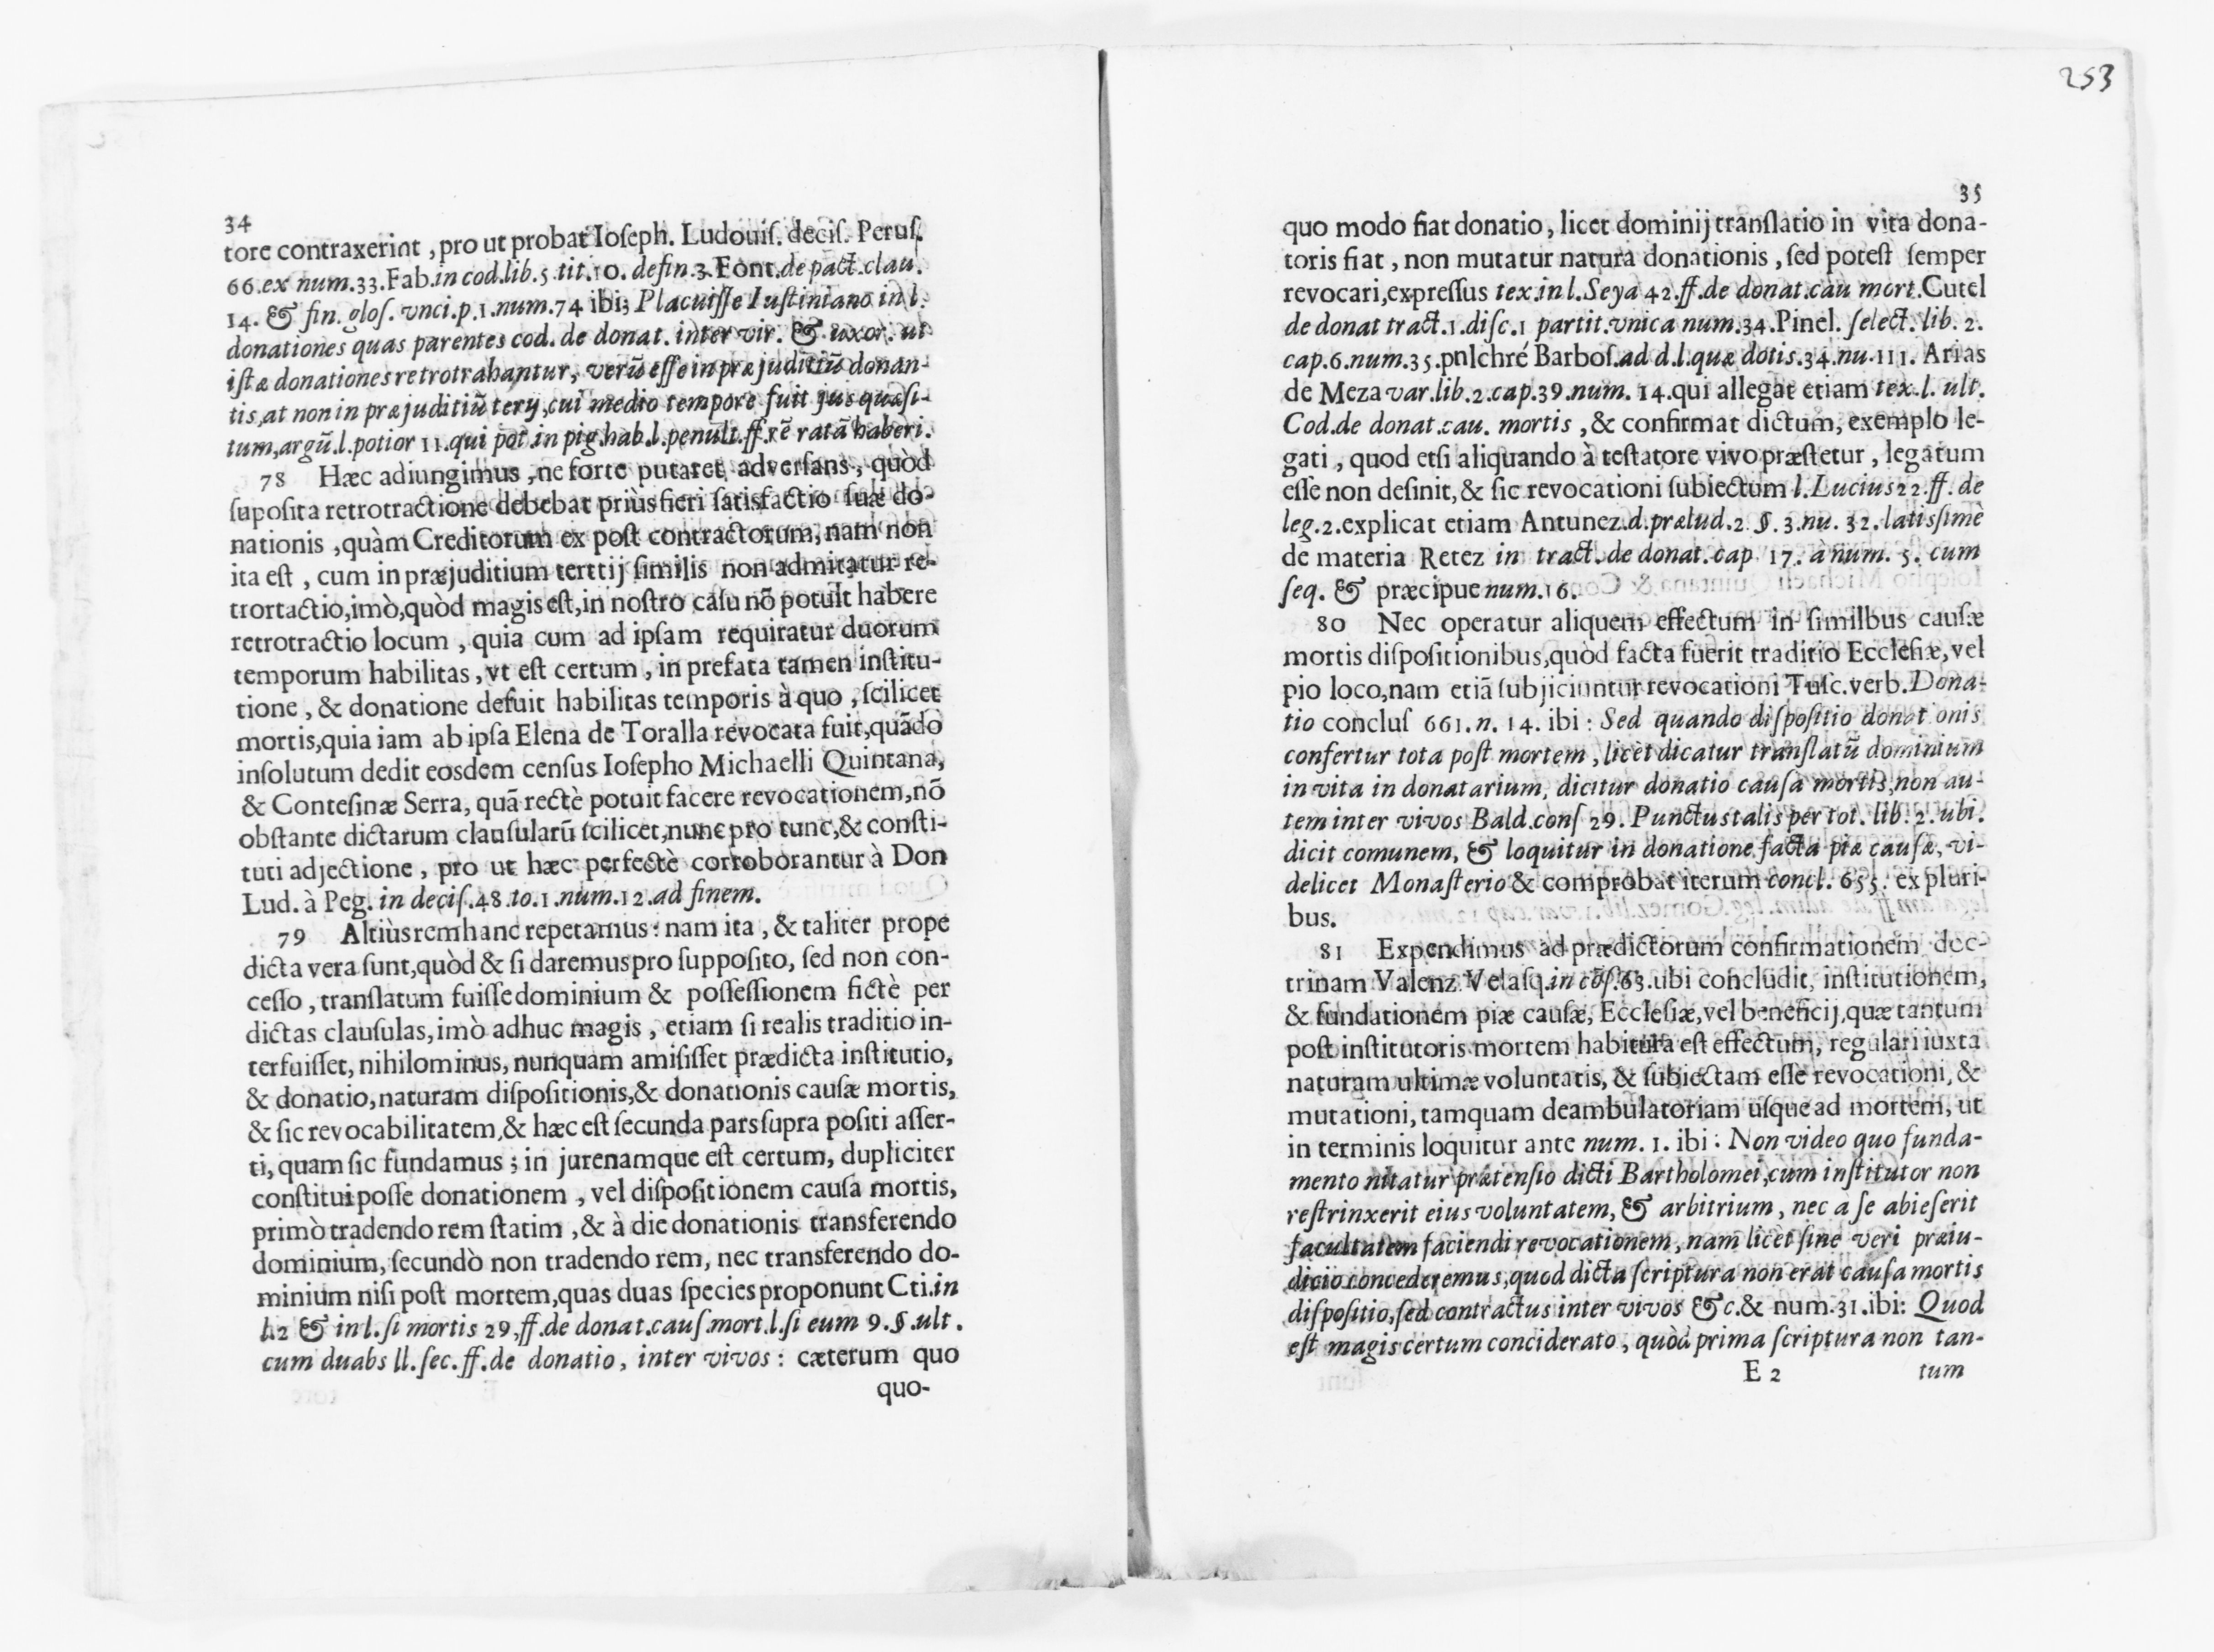 34
tore contraxerint, pro ut probat Ioſeph. Ludouiſ. deciſ. Peruſ.
66. ex num. 33. Fab. in cod. lib. 5. tit. 10. defin. 3. Font. de pact. clau.
14. & fin. gloſ. vnci. p. 1. num. 74 ibi; Placuiſſe Iuſtiniano in l.
donationes quas parentes cod. de donat. inter vir. & uxor. ut
iſtæ donationes retrotrahantur, verũ eſſe in præjuditiũ donan-
tis, at non in præjuditiũ terij, cui medio tempore fuit jus quæſi-
tum, argũ. l. potior 11. qui pot. in pig. hab. l. penult. ff. rē ratā haberi.
78 Hæc adiungimus, ne forte putaret adverſans, quòd
ſupoſita retrotractione debebat priùs fieri ſatisfactio ſuæ do-
nationis, quàm Creditorum ex poſt contractorum, nam non
ita eſt, cum in præjuditium terttij ſimilis non admitatur re-
trortactio, imò, quòd magis eſt, in noſtro caſu nõ potuit habere
retrotractio locum, quia cum ad ipſam requiratur duorum
temporum habilitas, vt eſt certum, in prefata tamen inſtitu-
tione, & donatione defuit habilitas temporis à quo, ſcilicet
mortis, quia iam ab ipſa Elena de Toralla revocata fuit, quãdo
inſolutum dedit eoſdem cenſus Ioſepho Michaelli Quintana,
& Conteſinæ Serra, quã rectè potuit facere revocationem, nõ
obſtante dictarum clauſularũ ſcilicet, nunc pro tunc, & conſti-
tuti adjectione, pro ut hæc perfectè corroborantur à Don
Lud. à Peg. in deciſ. 48. to. 1. num. 12. ad finem.
79 Altiùs rem hanc repetamus: nam ita, & taliter prope
dicta vera ſunt, quòd & ſi daremus pro ſuppoſito, ſed non con-
ceſſo, tranſlatum fuiſſe dominium & poſſeſſionem fictè per
dictas clauſulas, imò adhuc magis, etiam ſi realis traditio in-
terfuiſſet, nihilominus, nunquam amiſiſſet prædicta inſtitutio,
& donatio, naturam diſpoſitionis, & donationis cauſæ mortis,
& ſic revocabilitatem, & hæc eſt ſecunda pars ſupra poſiti aſſer-
ti, quam ſic fundamus; in jure namque eſt certum, dupliciter
conſtitui poſſe donationem, vel diſpoſitionem cauſa mortis,
primò tradendo rem ſtatim, & à die donationis transferendo
dominium, ſecundò non tradendo rem, nec transferendo do-
minium niſi poſt mortem, quas duas ſpecies proponunt Cti. in
l. 2 & in l. ſi mortis 29, ff. de donat. cauſ. mort. l. ſi eum 9. §. ult.
cum duabs ll. ſec. ff. de donatio, inter vivos: cæterum quo
quo-
253
35
quo modo fiat donatio, licet dominij tranſlatio in vita dona-
toris fiat, non mutatur natura donationis, ſed poteſt ſemper
revocari, expreſſus tex. in l. Seya 42. ff. de donat. cau mort. Cutel
de donat tract. 1. diſc. 1 partit. vnica num. 34. Pinel. ſelect. lib. 2.
cap. 6. num. 35. pnlchré Barboſ. ad d. l. quæ dotis. 34. nu. 111. Arias
de Meza var. lib. 2. cap. 39. num. 14. qui allegat etiam tex. l. ult.
Cod. de donat. cau. mortis, & confirmat dictum, exemplo le-
gati, quod etſi aliquando à teſtatore vivo præſtetur, legatum
eſſe non deſinit, & ſic revocationi ſubiectum l. Lucius 22. ff. de
leg. 2. explicat etiam Antunez. d. prælud. 2. §. 3. nu. 32. latiſsimè
de materia Retez in tract. de donat. cap 17. à num. 5. cum
ſeq. & præcipue num. 16.
80 Nec operatur aliquem effectum in ſimilbus cauſæ
mortis diſpoſitionibus, quòd facta fuerit traditio Eccleſiæ, vel
pio loco, nam etiã ſubjiciuntur revocationi Tuſc. verb. Dona-
tio concluſ 661. n. 14. ibi: Sed quando diſpoſitio donat onis
confertur tota poſt mortem, licèt dicatur tranſlatũ dominium
in vita in donatarium, dicitur donatio cauſa mortis, non au-
tem inter vivos Bald. conſ 29. Punctus talis per tot. lib. 2. ubi.
dicit comunem, & loquitur in donatione facta piæ cauſæ, vi-
delicet Monaſterio & comprobat iterum concl. 655. ex pluri-
bus.
81 Expendimus ad prædictorum confirmationem doc-
trinam Valenz. Velaſq. in cõſ. 63. ubi concludit, inſtitutionem,
& fundationem piæ cauſæ, Eccleſiæ, vel beneficij, quæ tantum
poſt inſtitutoris mortem habitura eſt effectum, regulari iuxta
naturam ultimæ voluntatis, & ſubiectam eſſe revocationi, &
mutationi, tamquam deambulatoriam uſque ad mortem, ut
in terminis loquitur ante num. 1. ibi: Non video quo funda-
mento nitatur prætenſio dicti Bartholomei, cum inſtitutor non
reſtrinxerit eius voluntatem, & arbitrium, nec a ſe abieſerit
facultatem faciendi revocationem, nam licèt ſine veri præiu-
dicio concederemus, quod dicta ſcriptura non erat cauſa mortis
diſpoſitio, ſed contractus inter vivos &c. & num. 31. ibi: Quod
eſt magis certum conciderato, quòd prima ſcriptura non tan-
E 2 tum